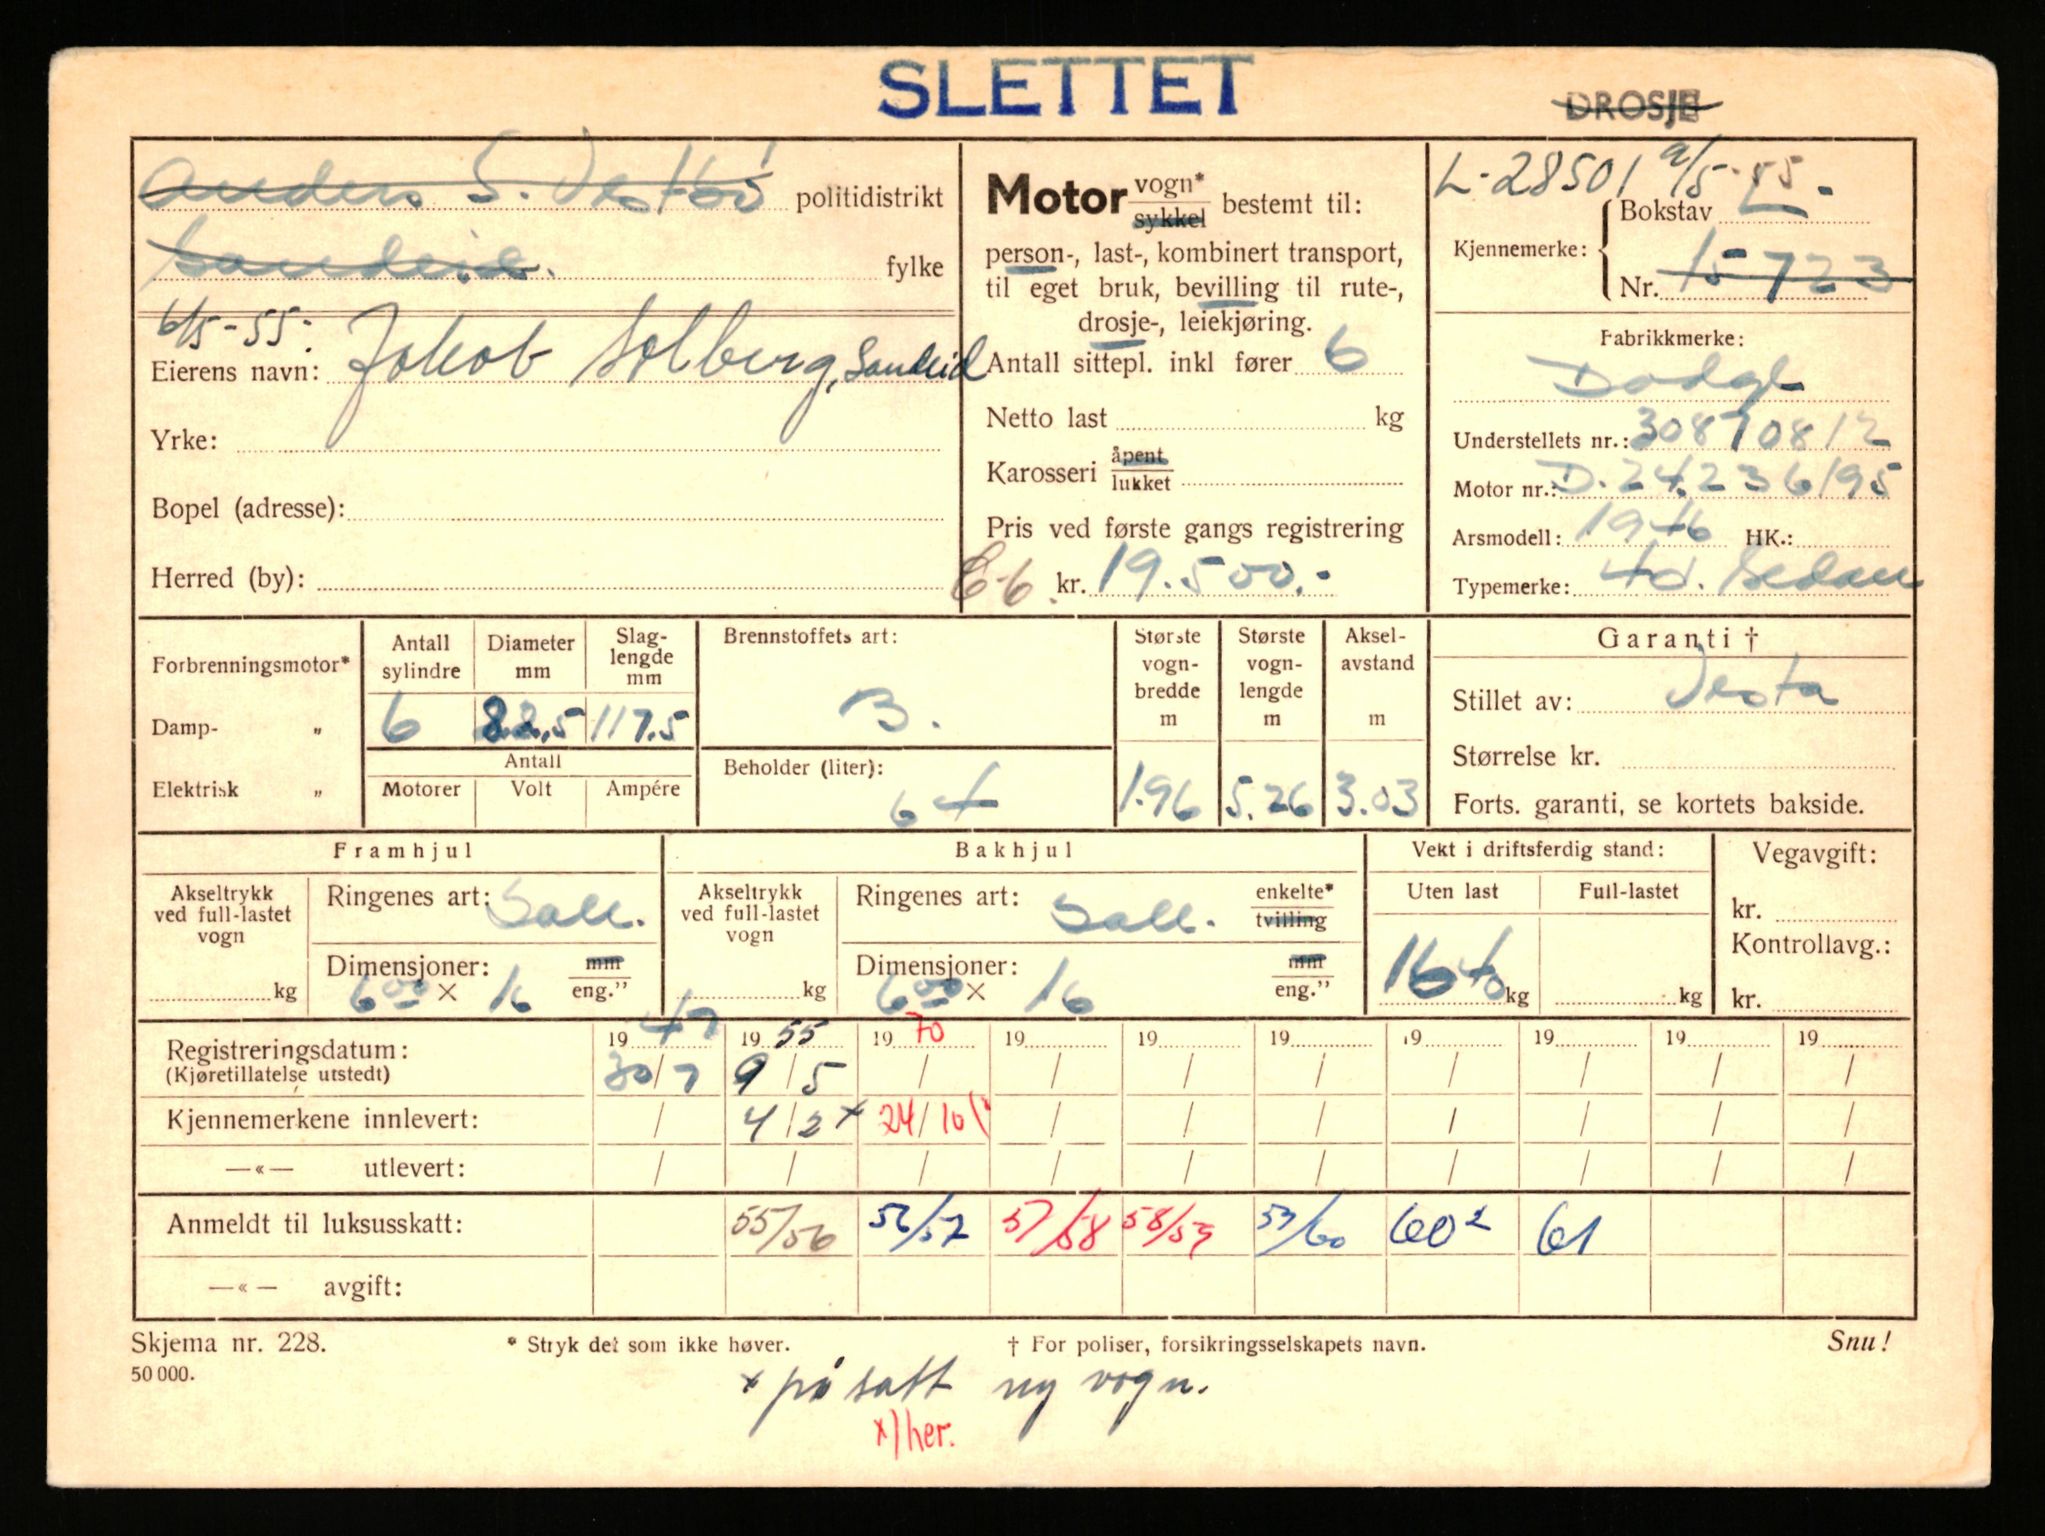 SLETTET
DROSJE
Anders S. Vestbö politidistrikt
Sandeid. fylke
6/5-55:
Eierens navn: Jakob Solberg, Sandeid
Yrke:
Bopel (adresse):
Herred (by):
Motor vogn* sykkel bestemt til:
person-, last-, kombinert transport,
til eget bruk, bevilling til rute-,
drosje-, leiekjøring.
Antall sittepl. inkl fører 6
Netto last kg
Karosseri åpent lukket
Pris ved første gangs registrering
E-6 kr. 19.500.-
L-28501 9/5-55
Kjennemerke: Bokstav L-
Nr. 15723
Fabrikkmerke:
Dodge
Understellets nr.: 30870812
Motor nr.: D.24.236195
Arsmodell: 1946 HK.:
Typemerke: 4d. Sedan
Forbrenningsmotor* Antall sylindre Diameter mm Slaglengde mm
Damp- „ 6 88,5 117.5
Elektrisk „ Antall
Motorer Volt Ampére
Brennstoffets art:
B.
Beholder (liter):
64
Største vogn-bredde m Største vogn-lengde m Aksel-avstand m
1.96 5.26 3.03
Garanti †
Stillet av: Vesta
Størrelse kr.
Forts. garanti, se kortets bakside.
Framhjul
Akseltrykk ved full-lastet vogn kg
Ringenes art: Ball.
Dimensjoner: 6.00 x 16 mm eng.”
Bakhjul
Akseltrykk ved full-lastet vogn kg
Ringenes art: Ball. enkelte* tvilling
Dimensjoner: 6.00 x 16 mm eng.”
Vekt i driftsferdig stand:
Uten last Full-lastet
1640 kg kg
Vegavgift:
kr.
Kontrollavg.:
kr.
19 47 19 55 19 70 19 19 19 19 19 19 19
Registreringsdatum: 30/7 9/5 / / / / / / / /
(Kjøretillatelse utstedt)
Kjennemerkene innlevert: / 4/2 x 24/10 / / / / / / /
—«— utlevert: / / / / / / / / / /
Anmeldt til luksusskatt: 55/56 56/57 57/58 58/59 59/60 60² 61
—«— avgift:
Skjema nr. 228. * Stryk det som ikke høver. † For poliser, forsikringsselskapets navn. Snu!
50 000.
x påsatt ny vogn.
x) her.